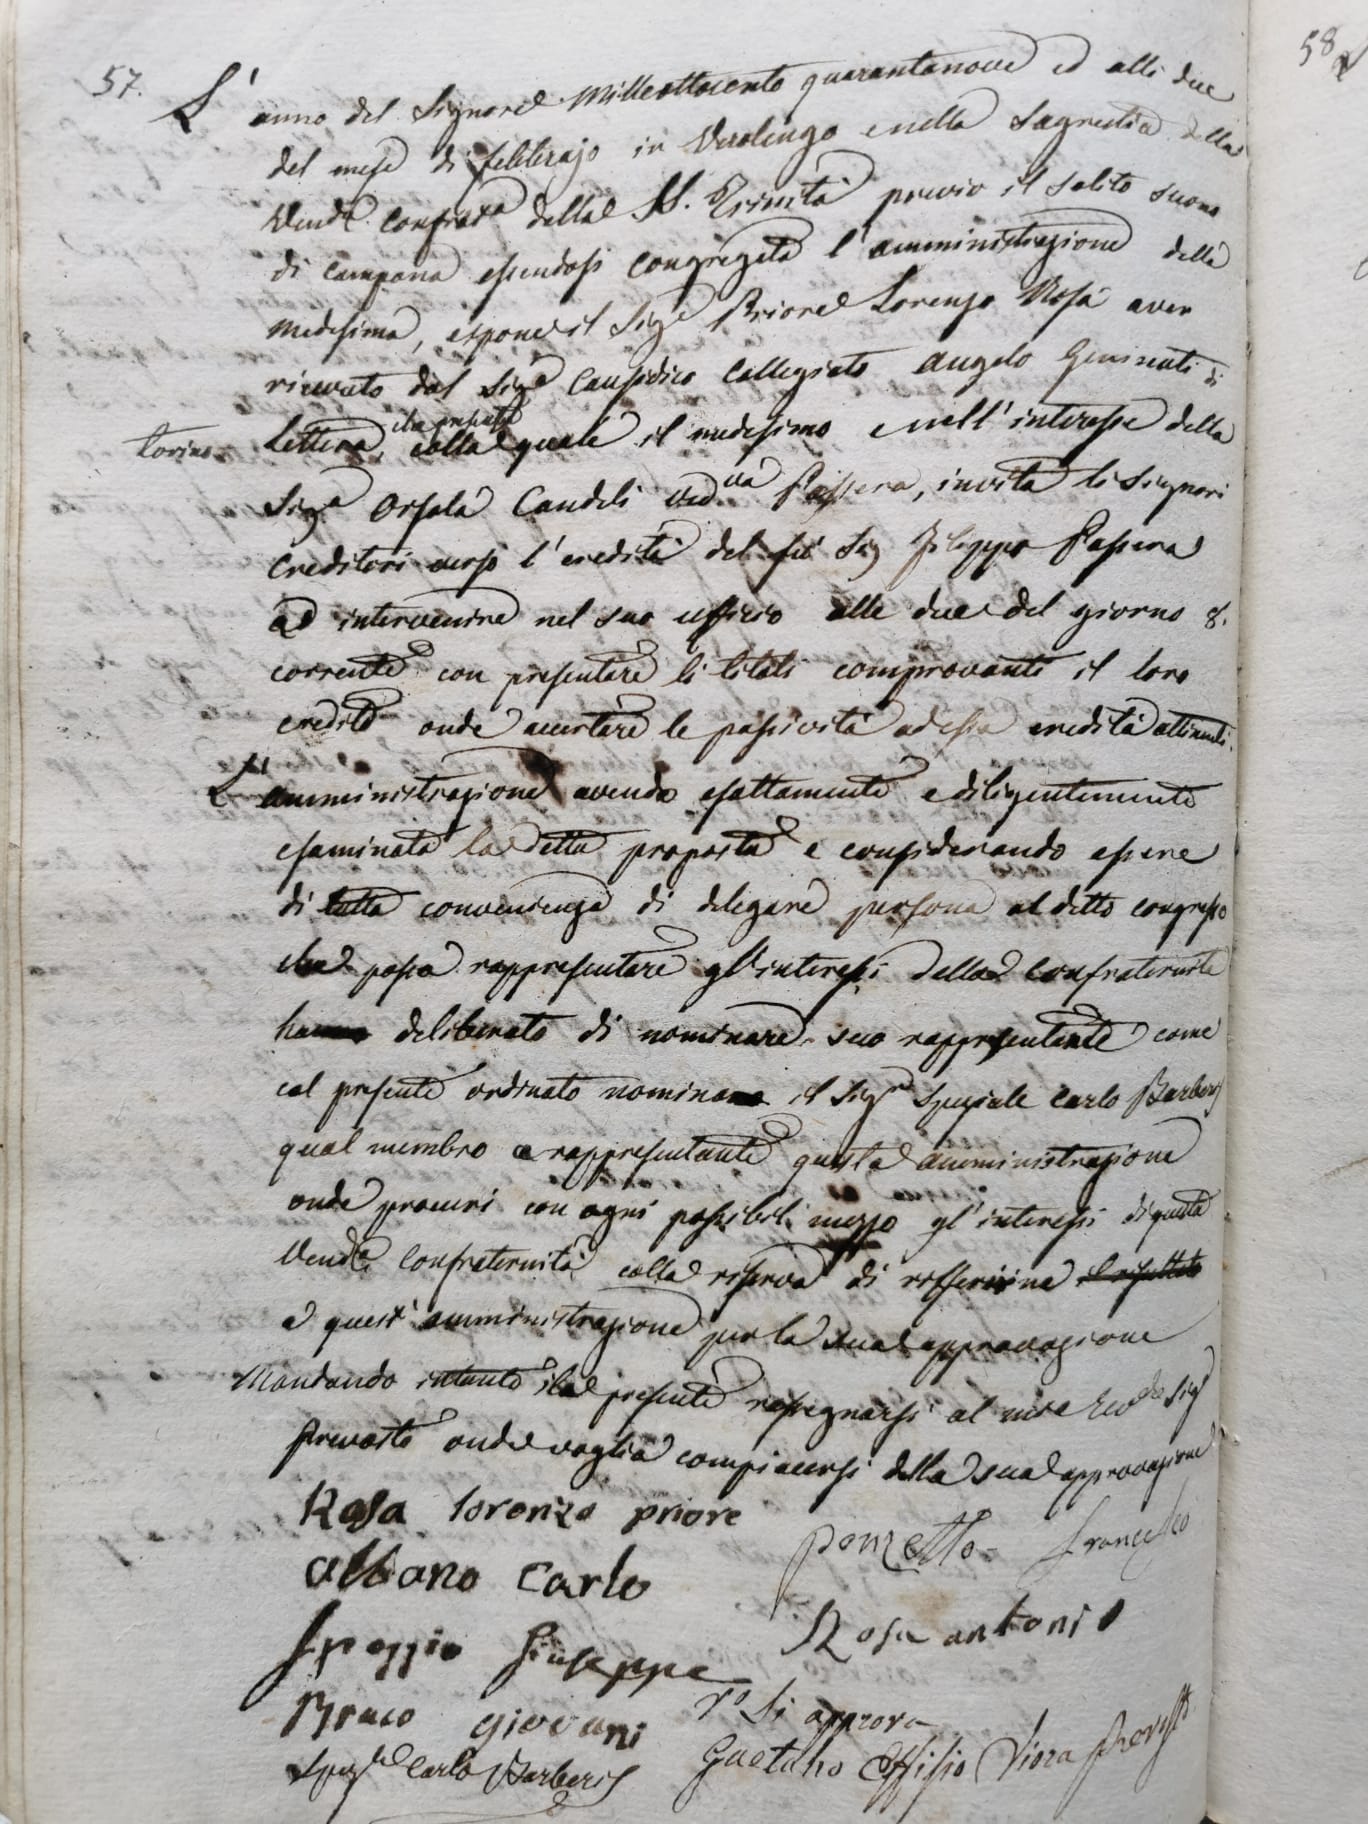 57.
58
L' anno del Signore Milleottocento quarantanove ed alli due
del mese di febbrajo in Verolengo e nella Sagrestia della
Vend.e Confrat.a della SS. Trinità previo il solito suono
di campana essendosi congregata l'amministrazione della
medesima, espone il Sig.e Priore Lorenzo Rosa aver
ricevuto dal Sig.e Causidico Collegiato Angelo Geninati di
Torino
lettera, colla quale il medesimo e nell'interesse della
Sig.a Orsola Candeli ved.va Passera, invita li Signori
creditori verso l'eredità del fù Sig Filippo Passera
ad intervenire nel suo uffizio alle due del giorno 8.
corrente con presentare li titoli comprovanti il loro
credito onde accertare le passività ad essa eredità attinenti.
L' amministrazione avendo esattamente e diligentemente
esaminata la detta proposta e considerando essere
di tutta convenienza di delegare persona al detto congresso
che possa rappresentare gl'interessi della Confraternita
deliberato di nominare suo rappresentante come
col presente ordinato nomina il Sig.e Speziale Carlo Barberis
qual membro e rappresentante questa amministrazione
onde procuri con ogni possibile mezzo gl'interessi di questa
Vend.a Confraternità colla riserva di rifferirne il risultato
a quest'amministrazione per la sua approvazione
Mandando intanto il presente rassegnarsi al Sig.r
Prevosto onde voglia compiacersi della sua approvazione
Rosa Lorenzo priore
Ponzetto Francesco
Albano Carlo
Rosa Antonio
Speggio Giuseppe
V.o Si approva
Giovani
Spez.le Carlo Barberis
Gaetano Effisio Viora Prevosto